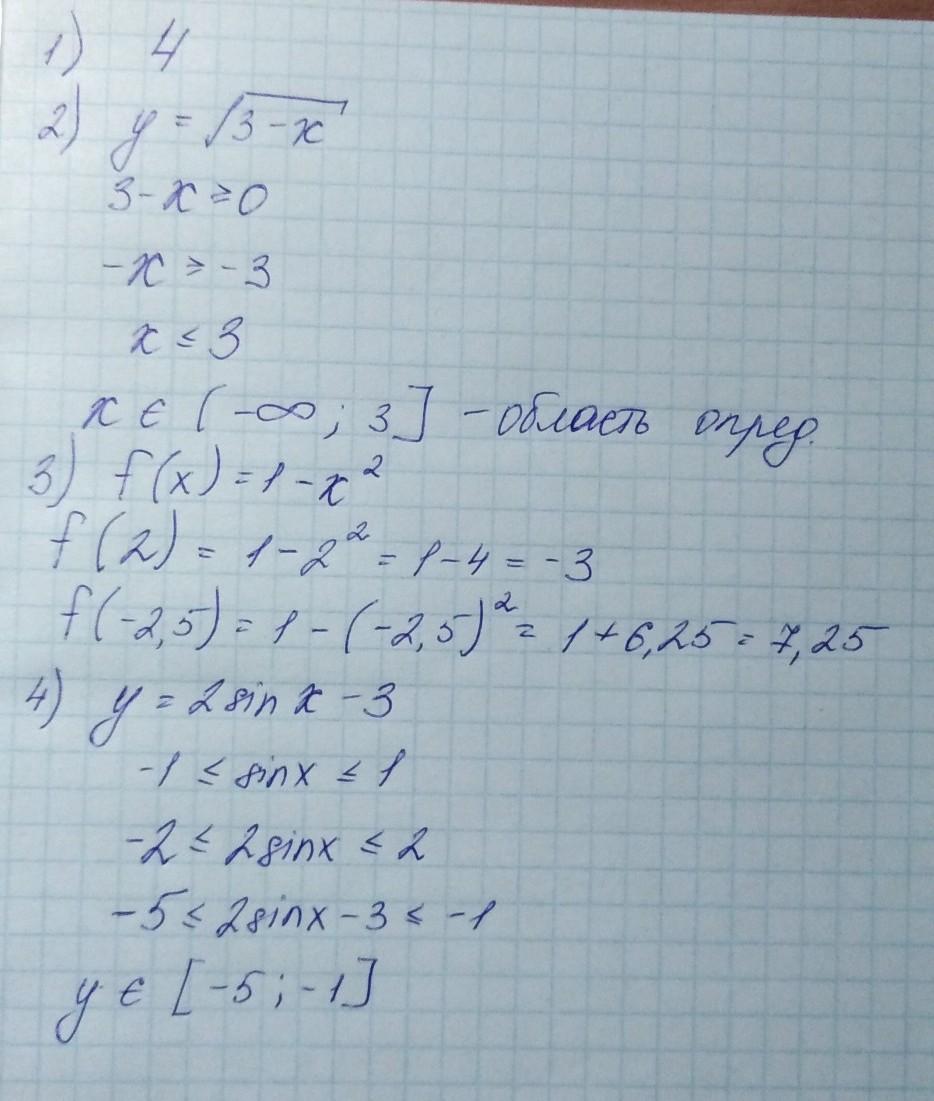 1) 4
2) y = √3-x
3-x ≥ 0
-x ≥ -3
x ≤ 3
x ∈ (-∞; 3] - область опред.
3) f(x) = 1 - x²
f(2) = 1 - 2² = 1 - 4 = -3
f(-2,5) = 1 - (-2,5)² = 1 + 6,25 = 7,25
4) y = 2sin x - 3
-1 ≤ sinx ≤ 1
-2 ≤ 2sinx ≤ 2
-5 ≤ 2sinx - 3 ≤ -1
y ∈ [-5; -1]